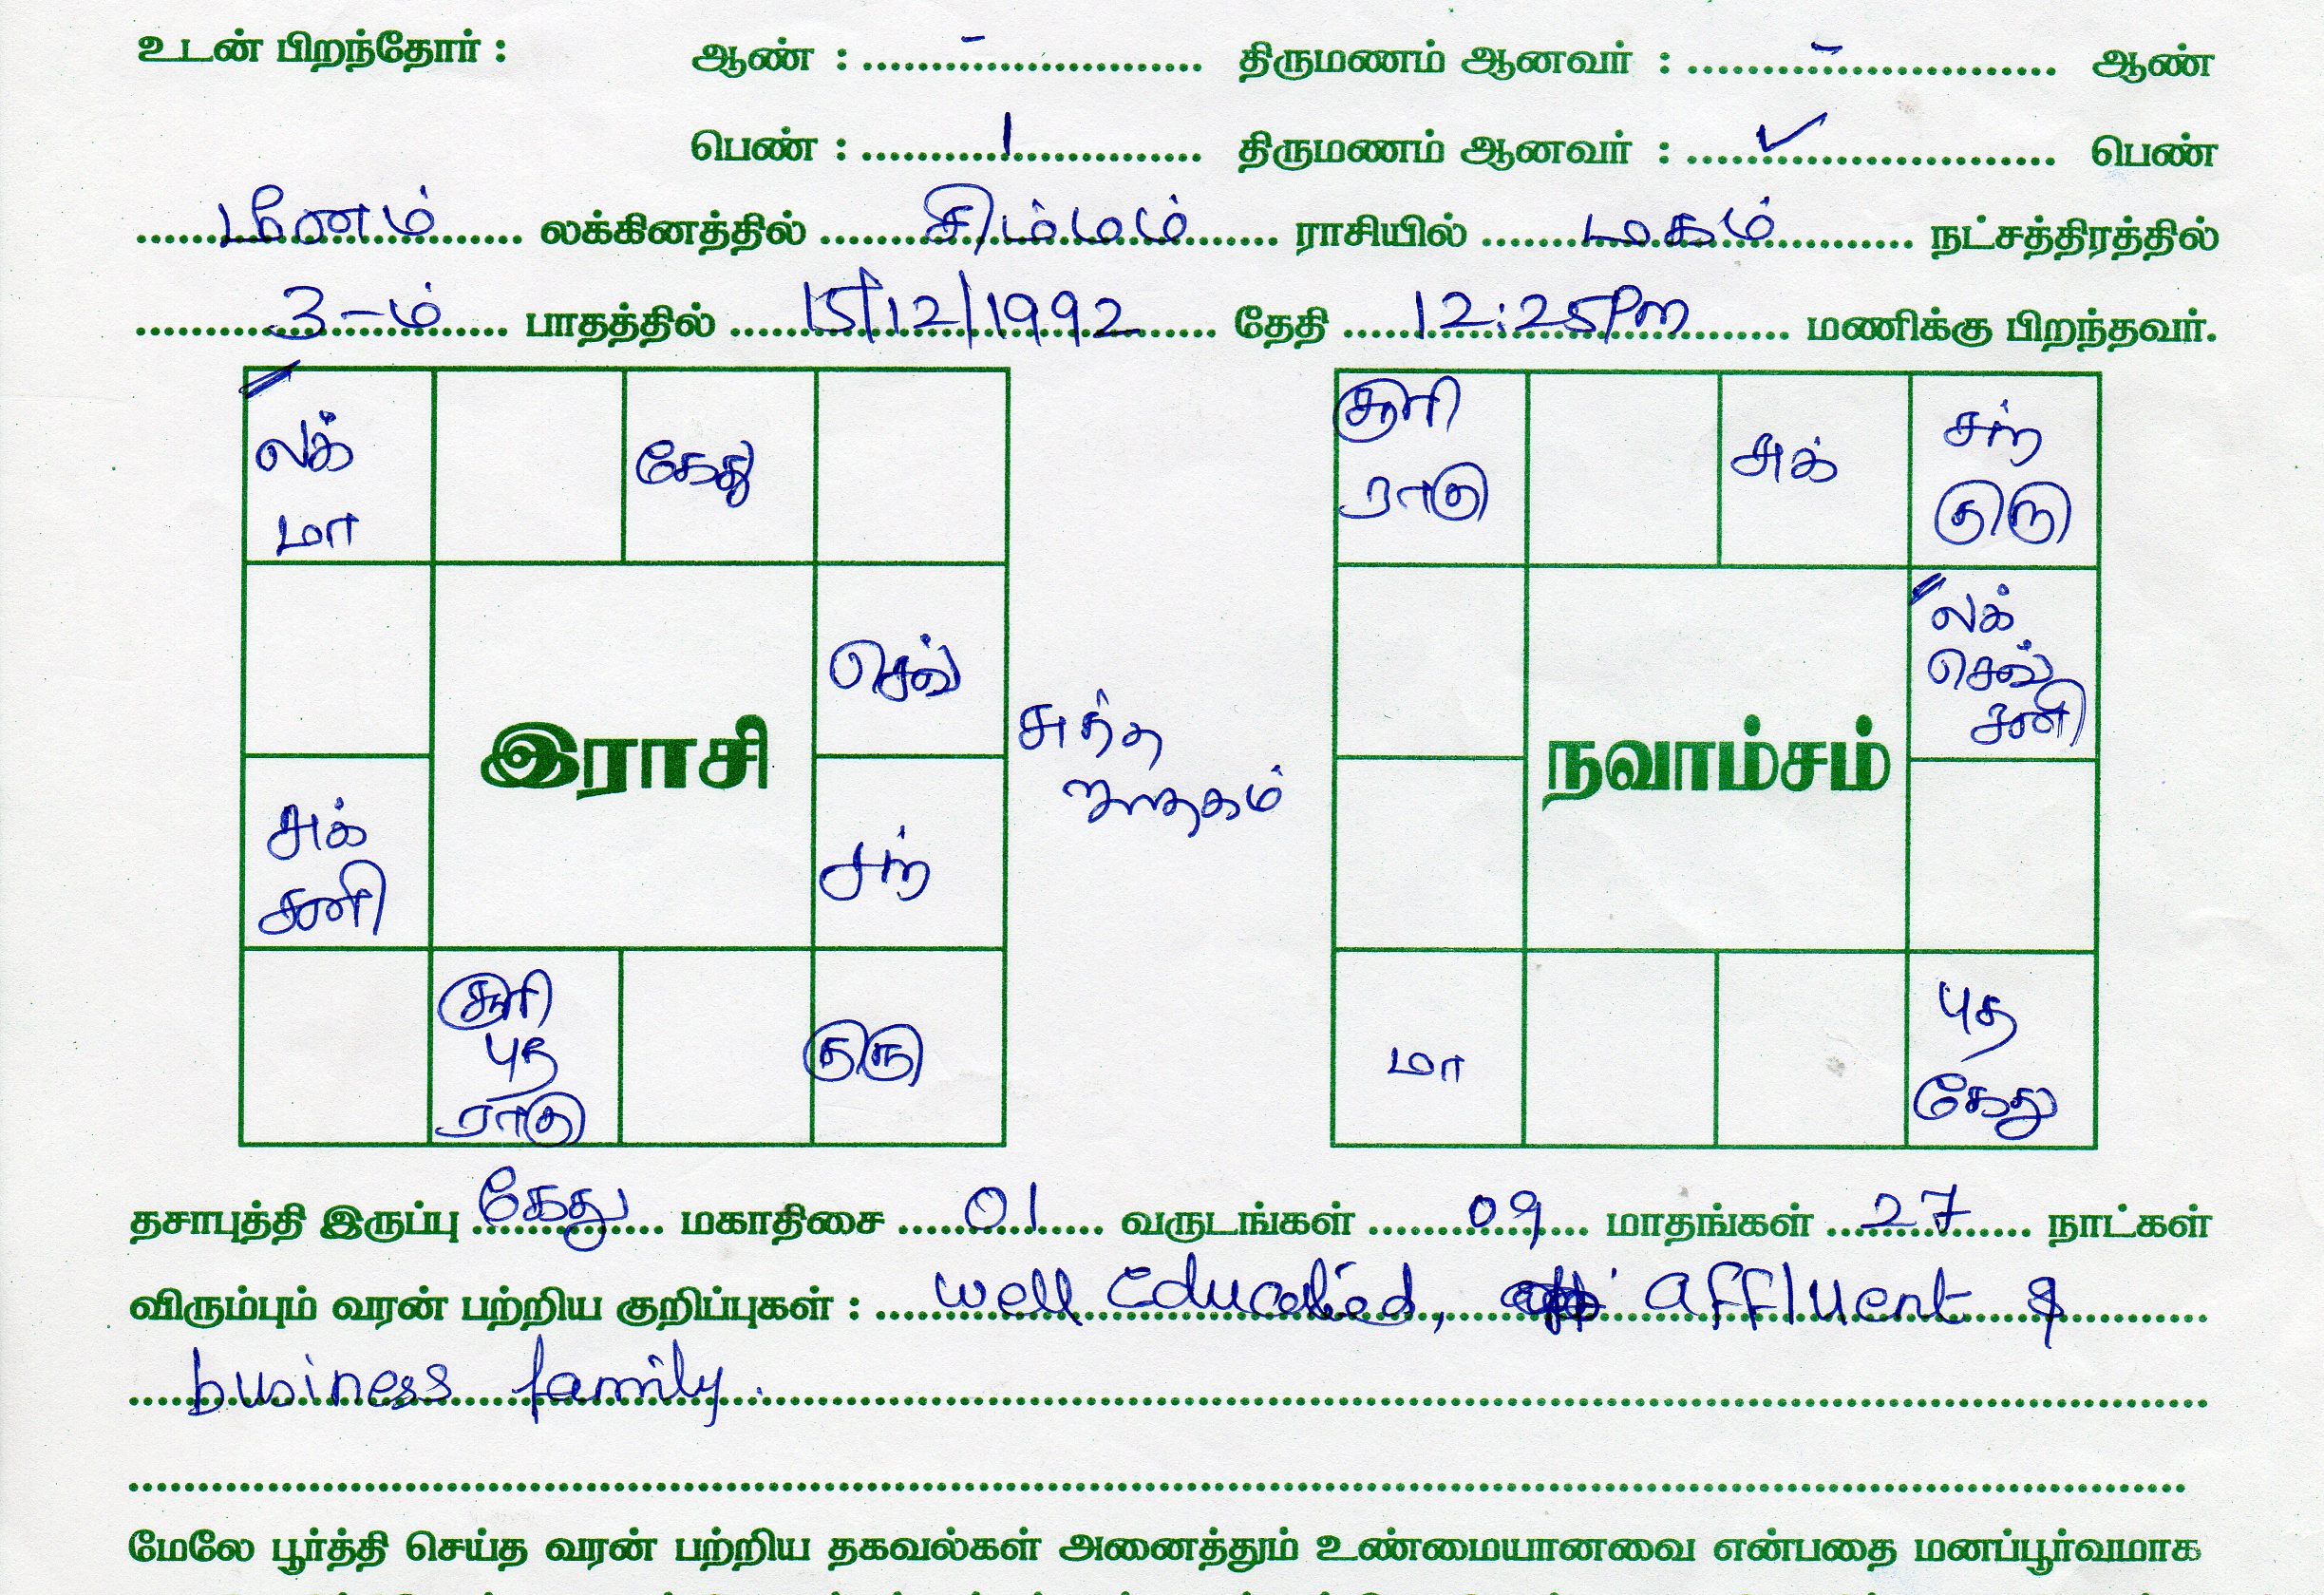 உடன் பிறந்தோர் : ஆண் : ........ - ........ திருமணம் ஆனவர் : ........ - ........ ஆண்
பெண் : ........ 1 ........ திருமணம் ஆனவர் : ........ ✓ ........ பெண்
மீனம் லக்கினத்தில் சிம்மம் ராசியில் மகம் நட்சத்திரத்தில்
3-ம் பாதத்தில் 15/12/1992 தேதி 12:25Pm மணிக்கு பிறந்தவர்.
லக்
மா
கேது
செவ்
சந்
குரு
சூரி
புத
ராகு
சுக்
சனி
இராசி
சுத்த
ஜாதகம்
சூரி
ராகு
சுக்
சந்
குரு
லக்
செவ்
சனி
புத
கேது
மா
நவாம்சம்
தசாபுத்தி இருப்பு கேது மகாதிசை 01 வருடங்கள் 09 மாதங்கள் 27 நாட்கள்
விரும்பும் வரன் பற்றிய குறிப்புகள் : well Educated, affluent &
business family.
மேலே பூர்த்தி செய்த வரன் பற்றிய தகவல்கள் அனைத்தும் உண்மையானவை என்பதை மனப்பூர்வமாக